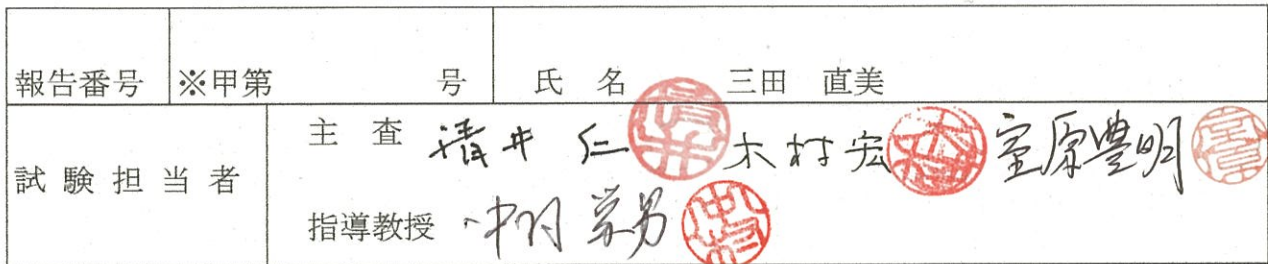 報告番号 ※甲第 号 氏 名 三田 直美
試 験 担 当 者
主 査 清井 仁 木村 宏 室原豊明
指導教授 中村